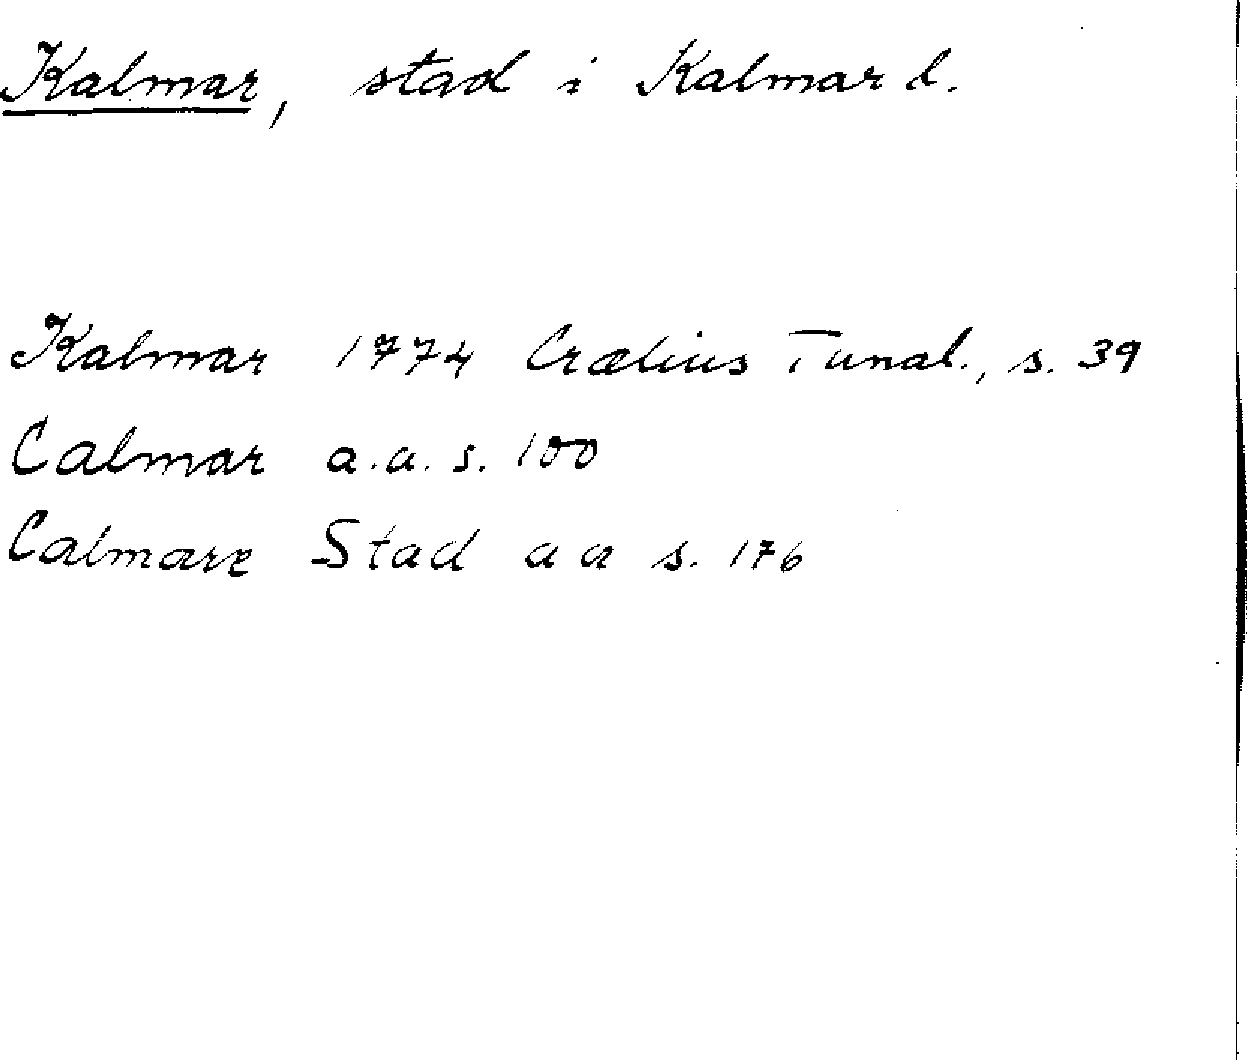 Kalmar, stad i Kalmar l.
Kalmar 1774 Crælius Tunal., s. 39
Calmar a.a. s. 100
Calmare Stad a a s. 176